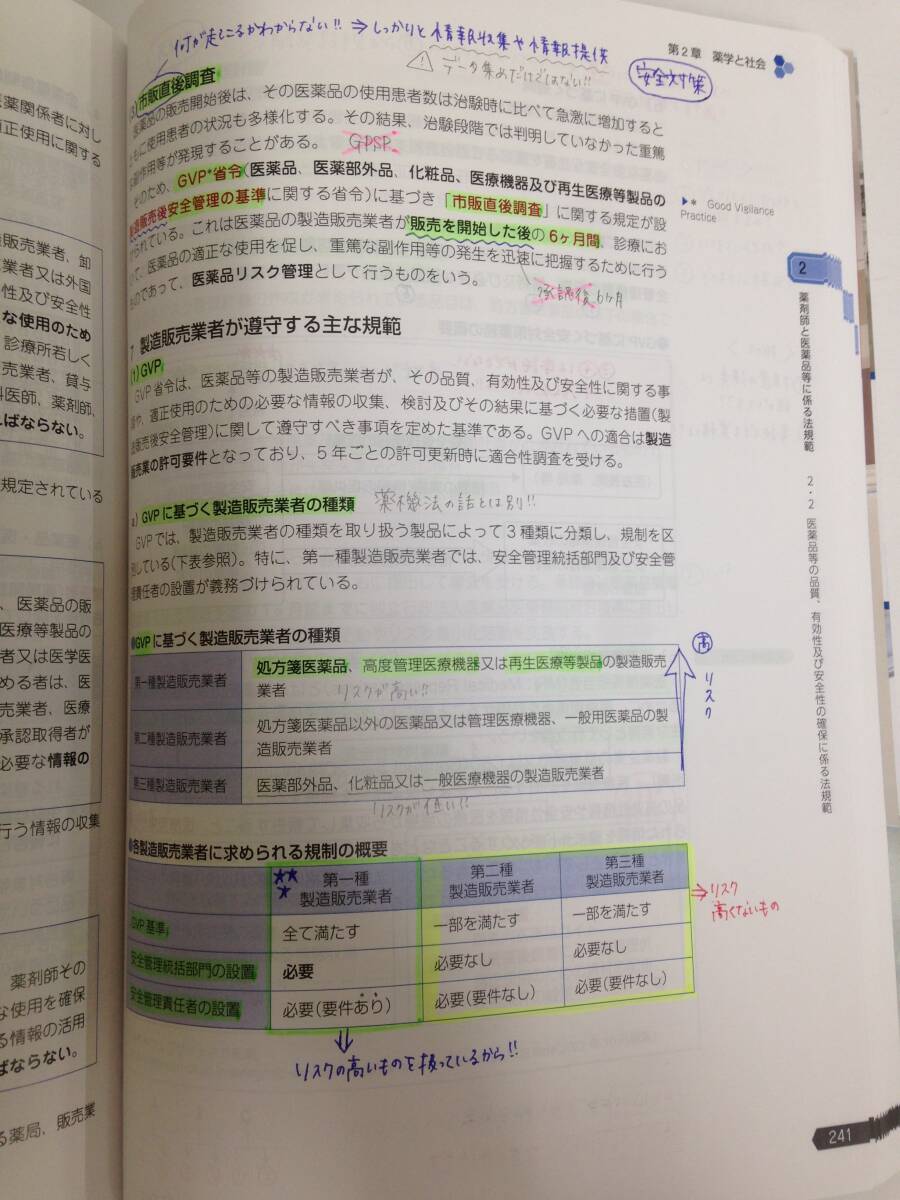 何が起こるかわからない!! ⇒ しっかりと情報収集や情報提供
⚠ データ集めだけではない!!
安全対策
第2章 薬学と社会
(3)市販直後調査
医薬品の販売開始後は、その医薬品の使用患者数は治験時に比べて急激に増加すると
ともに使用患者の状況も多様化する。その結果、治験段階では判明していなかった重篤
な副作用等が発現することがある。
GPSP
そのため、GVP*省令(医薬品、医薬部外品、化粧品、医療機器及び再生医療等製品の
製造販売後安全管理の基準に関する省令)に基づき「市販直後調査」に関する規定が設
けられている。これは医薬品の製造販売業者が販売を開始した後の6ヶ月間、診療にお
いて、医薬品の適正な使用を促し、重篤な副作用等の発生を迅速に把握するために行う
ものであって、医薬品リスク管理として行うものをいう。
承認後6ヶ月
▶* Good Vigilance
Practice
7 製造販売業者が遵守する主な規範
(1)GVP
GVP省令は、医薬品等の製造販売業者が、その品質、有効性及び安全性に関する事
項や、適正使用のための必要な情報の収集、検討及びその結果に基づく必要な措置(製
造販売後安全管理)に関して遵守すべき事項を定めた基準である。GVPへの適合は製造
販売業の許可要件となっており、5年ごとの許可更新時に適合性調査を受ける。
a)GVPに基づく製造販売業者の種類
薬機法の話とは別!!
GVPでは、製造販売業者の種類を取り扱う製品によって3種類に分類し、規制を区
別している(下表参照)。特に、第一種製造販売業者では、安全管理統括部門及び安全管
理責任者の設置が義務づけられている。
●GVPに基づく製造販売業者の種類
第一種製造販売業者
処方箋医薬品、高度管理医療機器又は再生医療等製品の製造販売
業者
リスクが高い!!
第二種製造販売業者
処方箋医薬品以外の医薬品又は管理医療機器、一般用医薬品の製
造販売業者
第三種製造販売業者
医薬部外品、化粧品又は一般医療機器の製造販売業者
リスクが低い!!
高
リスク
●各製造販売業者に求められる規制の概要
第一種
製造販売業者
第二種
製造販売業者
第三種
製造販売業者
GVP基準
全て満たす
一部を満たす
一部を満たす
安全管理統括部門の設置
必要
必要なし
必要なし
安全管理責任者の設置
必要(要件あり)
必要(要件なし)
必要(要件なし)
⇒リスク
高くないもの
リスクの高いものを扱っているから!!
2
薬剤師と医薬品等に係る法規範
2・2 医薬品等の品質、有効性及び安全性の確保に係る法規範
241
医薬関係者に対し
適正使用に関する
販売業者、卸
業者又は外国
性及び安全性
な使用のため
診療所若しく
売業者、貸与
科医師、薬剤師、
ればならない。
規定されている
、医薬品の販
医療等製品の
者又は医学医
める者は、医
売業者、医療
承認取得者が
必要な情報の
行う情報の収集
薬剤師その
な使用を確保
る情報の活用
ばならない。
る薬局、販売業